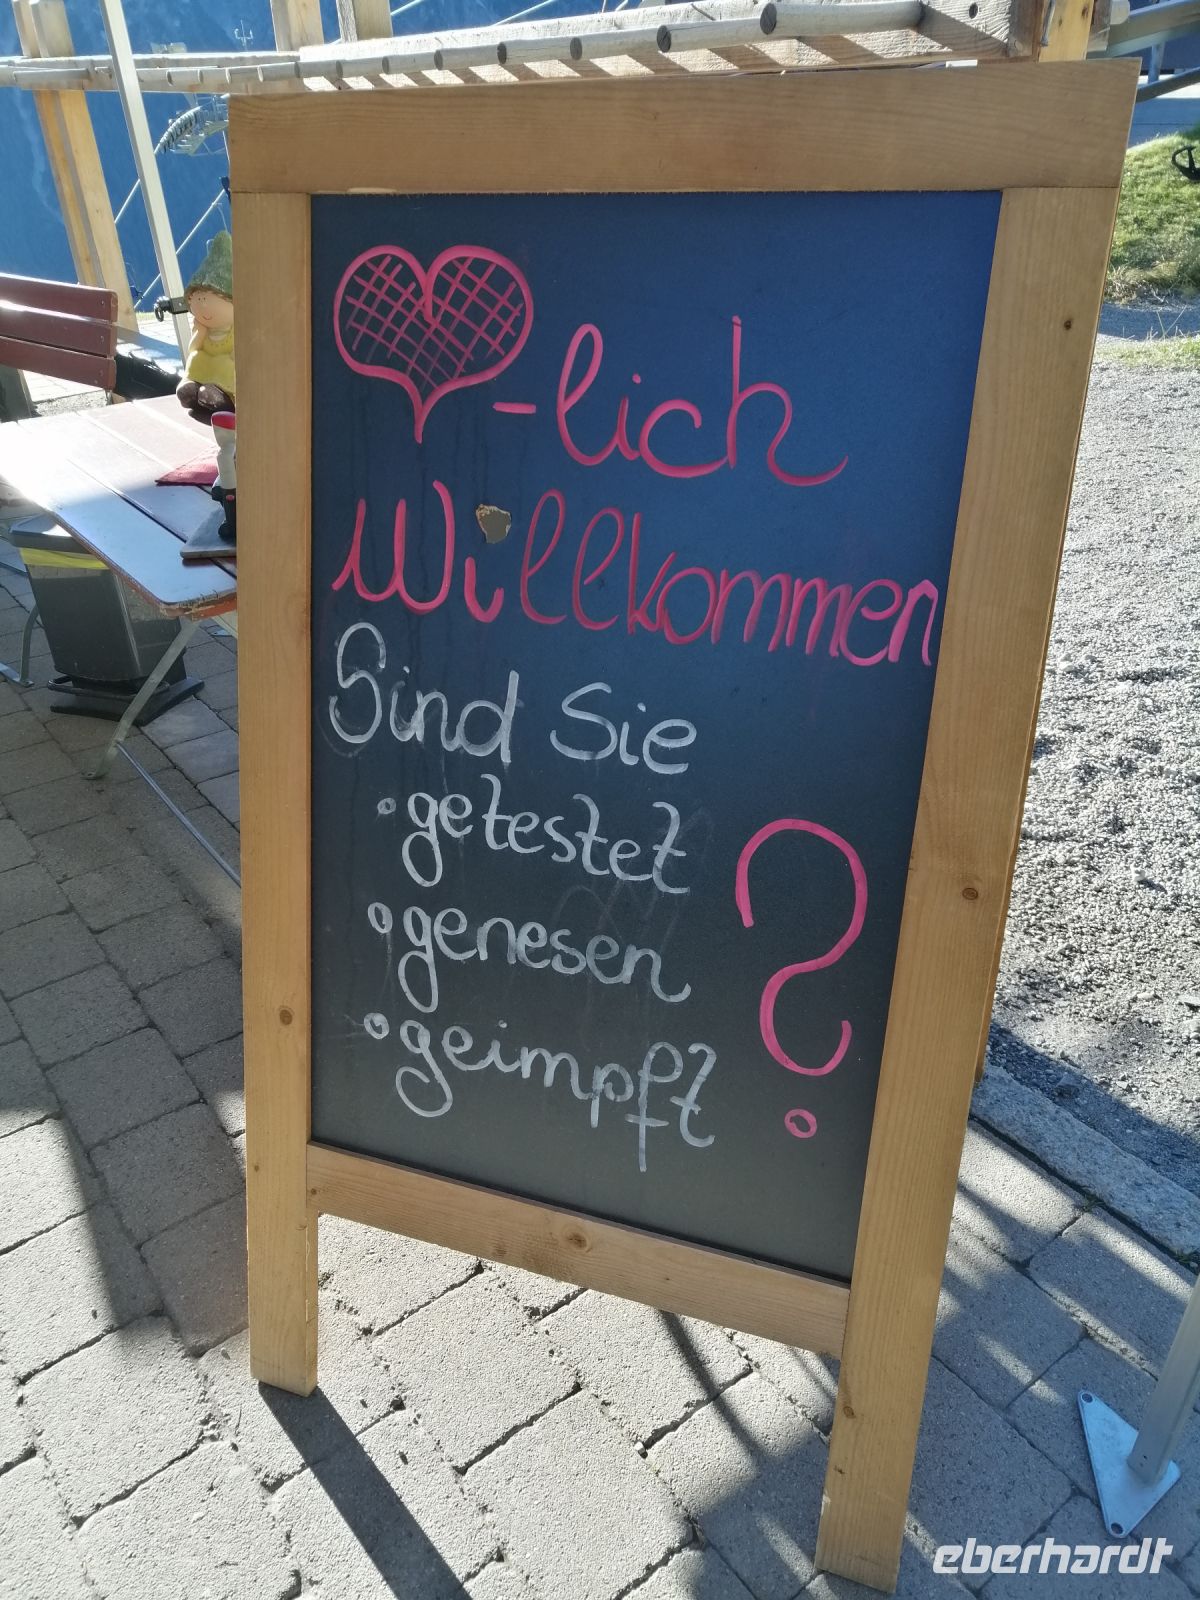 -lich
Willkommen
Sind Sie
• getestet
• genesen
• geimpft
?
eberhardt